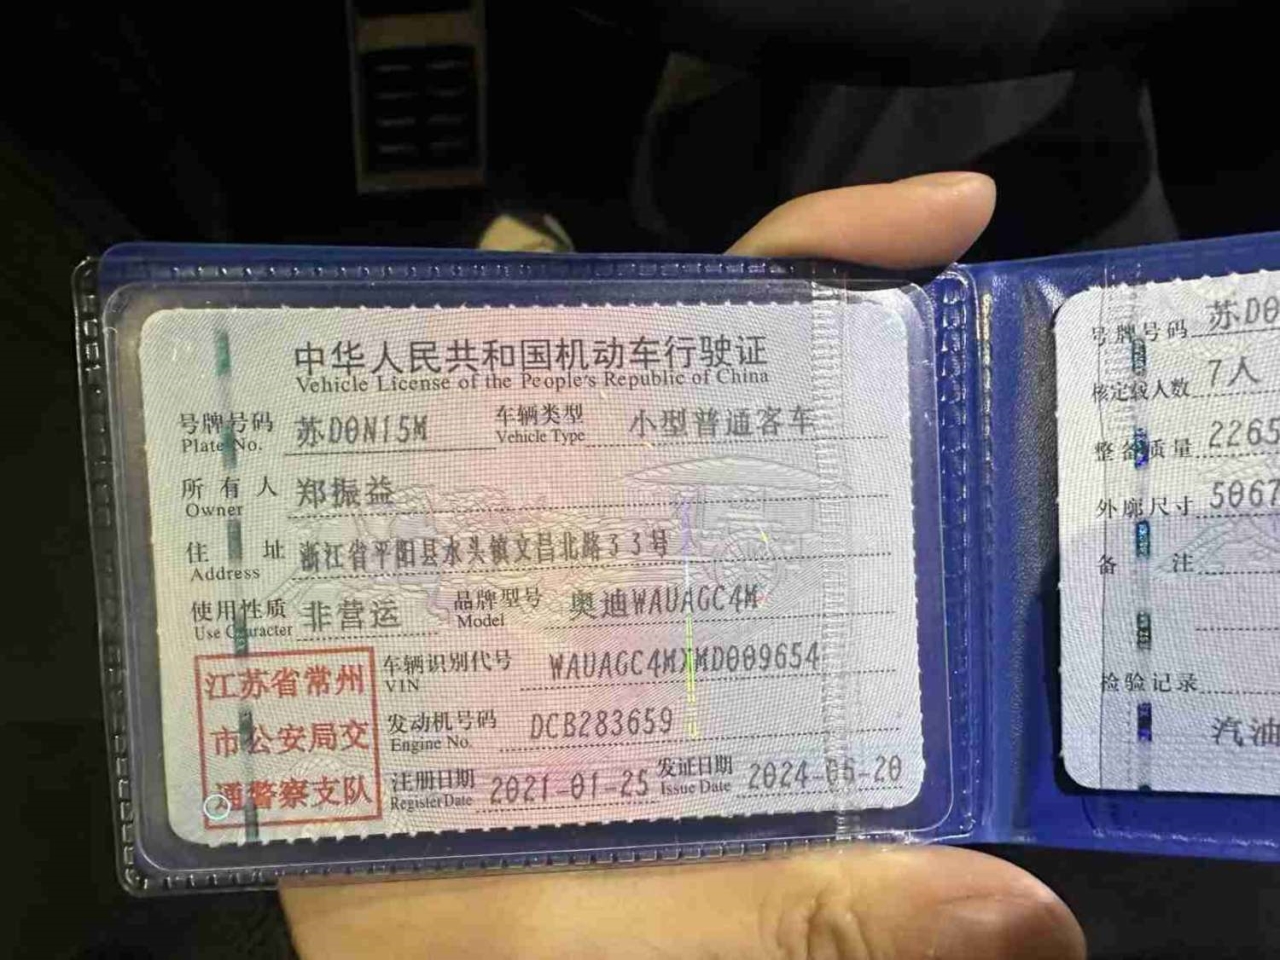 中华人民共和国机动车行驶证
Vehicle License of the People's Republic of China
号牌号码 苏D0N15M 车辆类型 小型普通客车
Plate No. Vehicle Type
所有人 郑振益
Owner
住址 浙江省平阳县水头镇文昌北路33号
Address
使用性质 非营运 品牌型号 奥迪WAUAGC4M
Use Character Model
江苏省常州
市公安局交
通警察支队
车辆识别代号 WAUAGC4MXMD009654
VIN
发动机号码 DCB283659
Engine No.
注册日期 2021-01-25 发证日期 2024-06-20
Register Date Issue Date
号牌号码 苏D0
核定载人数 7人
整备质量 2265
外廓尺寸 5067
备注
检验记录
汽油